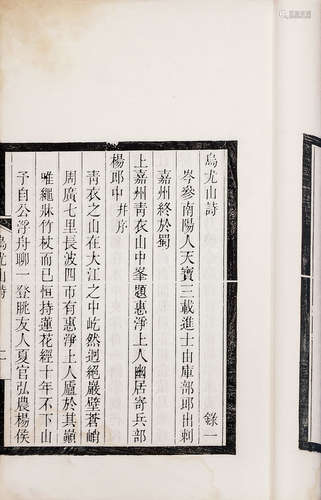 烏尤山詩　錄一
岑參南陽人天寶三載進士由庫部郎出刺
嘉州終於蜀
上嘉州青衣山中峯題惠淨上人幽居寄兵部
楊郎中　幷序
青衣之山在大江之中屹然迥絕巖壁蒼峭
周廣七里長波四帀有惠淨上人廬於其巔
唯繩牀竹杖而已恒持蓮花經十年不下山
予自公浮舟聊一登眺友人夏官弘農楊侯
烏尤山詩　一